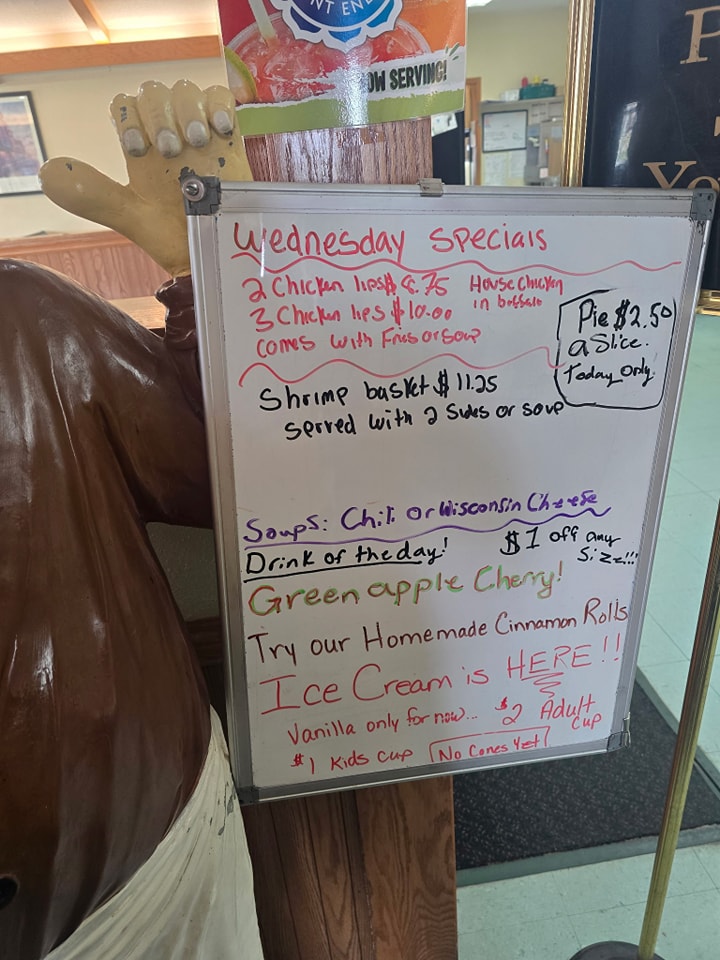 NT ENE
OW SERVING!
P
You
Wednesday Specials
2 Chicken lips $ 8.75 House Chicken
in buffalo
3 Chicken lips $10.00
comes with Fries or soup
Pie $2.50
a Slice.
Today only.
Shrimp basket $ 11.25
served with 2 Sides or soup
Soups: Chili or Wisconsin Cheese
Drink of the day! $1 off any
Size!!!
Green apple Cherry!
Try our Homemade Cinnamon Rolls
Ice Cream is HERE!!
Vanilla only for now... $2 Adult
Cup
$1 Kids Cup No Cones Yet!